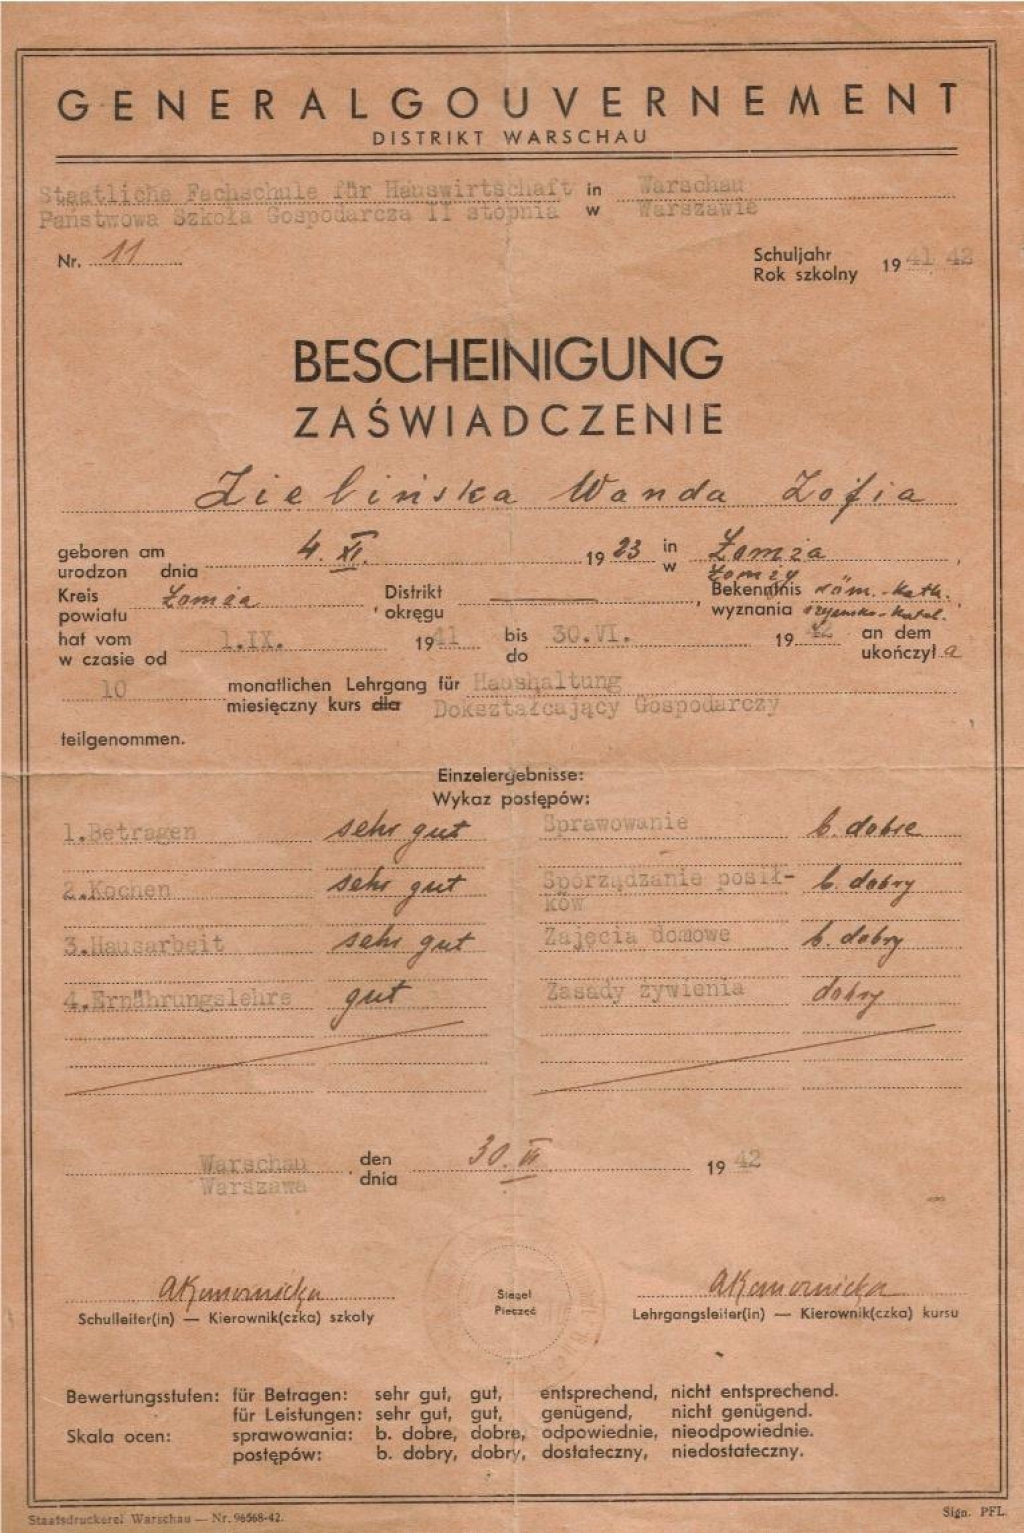 GENERALGOUVERNEMENT
DISTRIKT WARSCHAU
Staatliche Fachschule für Hauswirtschaft in Warschau
Państwowa Szkoła Gospodarcza II stopnia w Warszawie
Nr. 11
Schuljahr
Rok szkolny 19 41 42
BESCHEINIGUNG
ZAŚWIADCZENIE
Zielińska Wanda Zofia
geboren am 4. XI. 19 23 in Łomża,
urodzon dnia w Łomży
Kreis Łomża, Distrikt —, Bekenntnis röm.-kath.
powiatu okręgu wyznania rzymsko-katol.
hat vom 1.IX. 19 41 bis 30.VI. 19 42 an dem
w czasie od do ukończył a
10 monatlichen Lehrgang für Haushaltung
miesięczny kurs dla Dokształcający Gospodarczy
teilgenommen.
Einzelergebnisse:
Wykaz postępów:
1.Betragen sehr gut Sprawowanie b. dobre
2.Kochen sehr gut Sporządzanie posił-
ków b. dobry
3.Hausarbeit sehr gut Zajęcia domowe b. dobry
4.Ernährungslehre gut Zasady żywienia dobry
Warschau, den 30. VI 19 42
Warszawa dnia
AKomornicka
Siegel
Pieczęć
AKomornicka
Schulleiter(in) — Kierownik(czka) szkoły
Lehrgangsleiter(in) — Kierownik(czka) kursu
Bewertungsstufen: für Betragen: sehr gut, gut, entsprechend, nicht entsprechend.
für Leistungen: sehr gut, gut, genügend, nicht genügend.
Skala ocen: sprawowania: b. dobre, dobre, odpowiednie, nieodpowiednie.
postępów: b. dobry, dobry, dostateczny, niedostateczny.
Staatsdruckerei Warschau — Nr. 96568-42.
Sign. PFL.